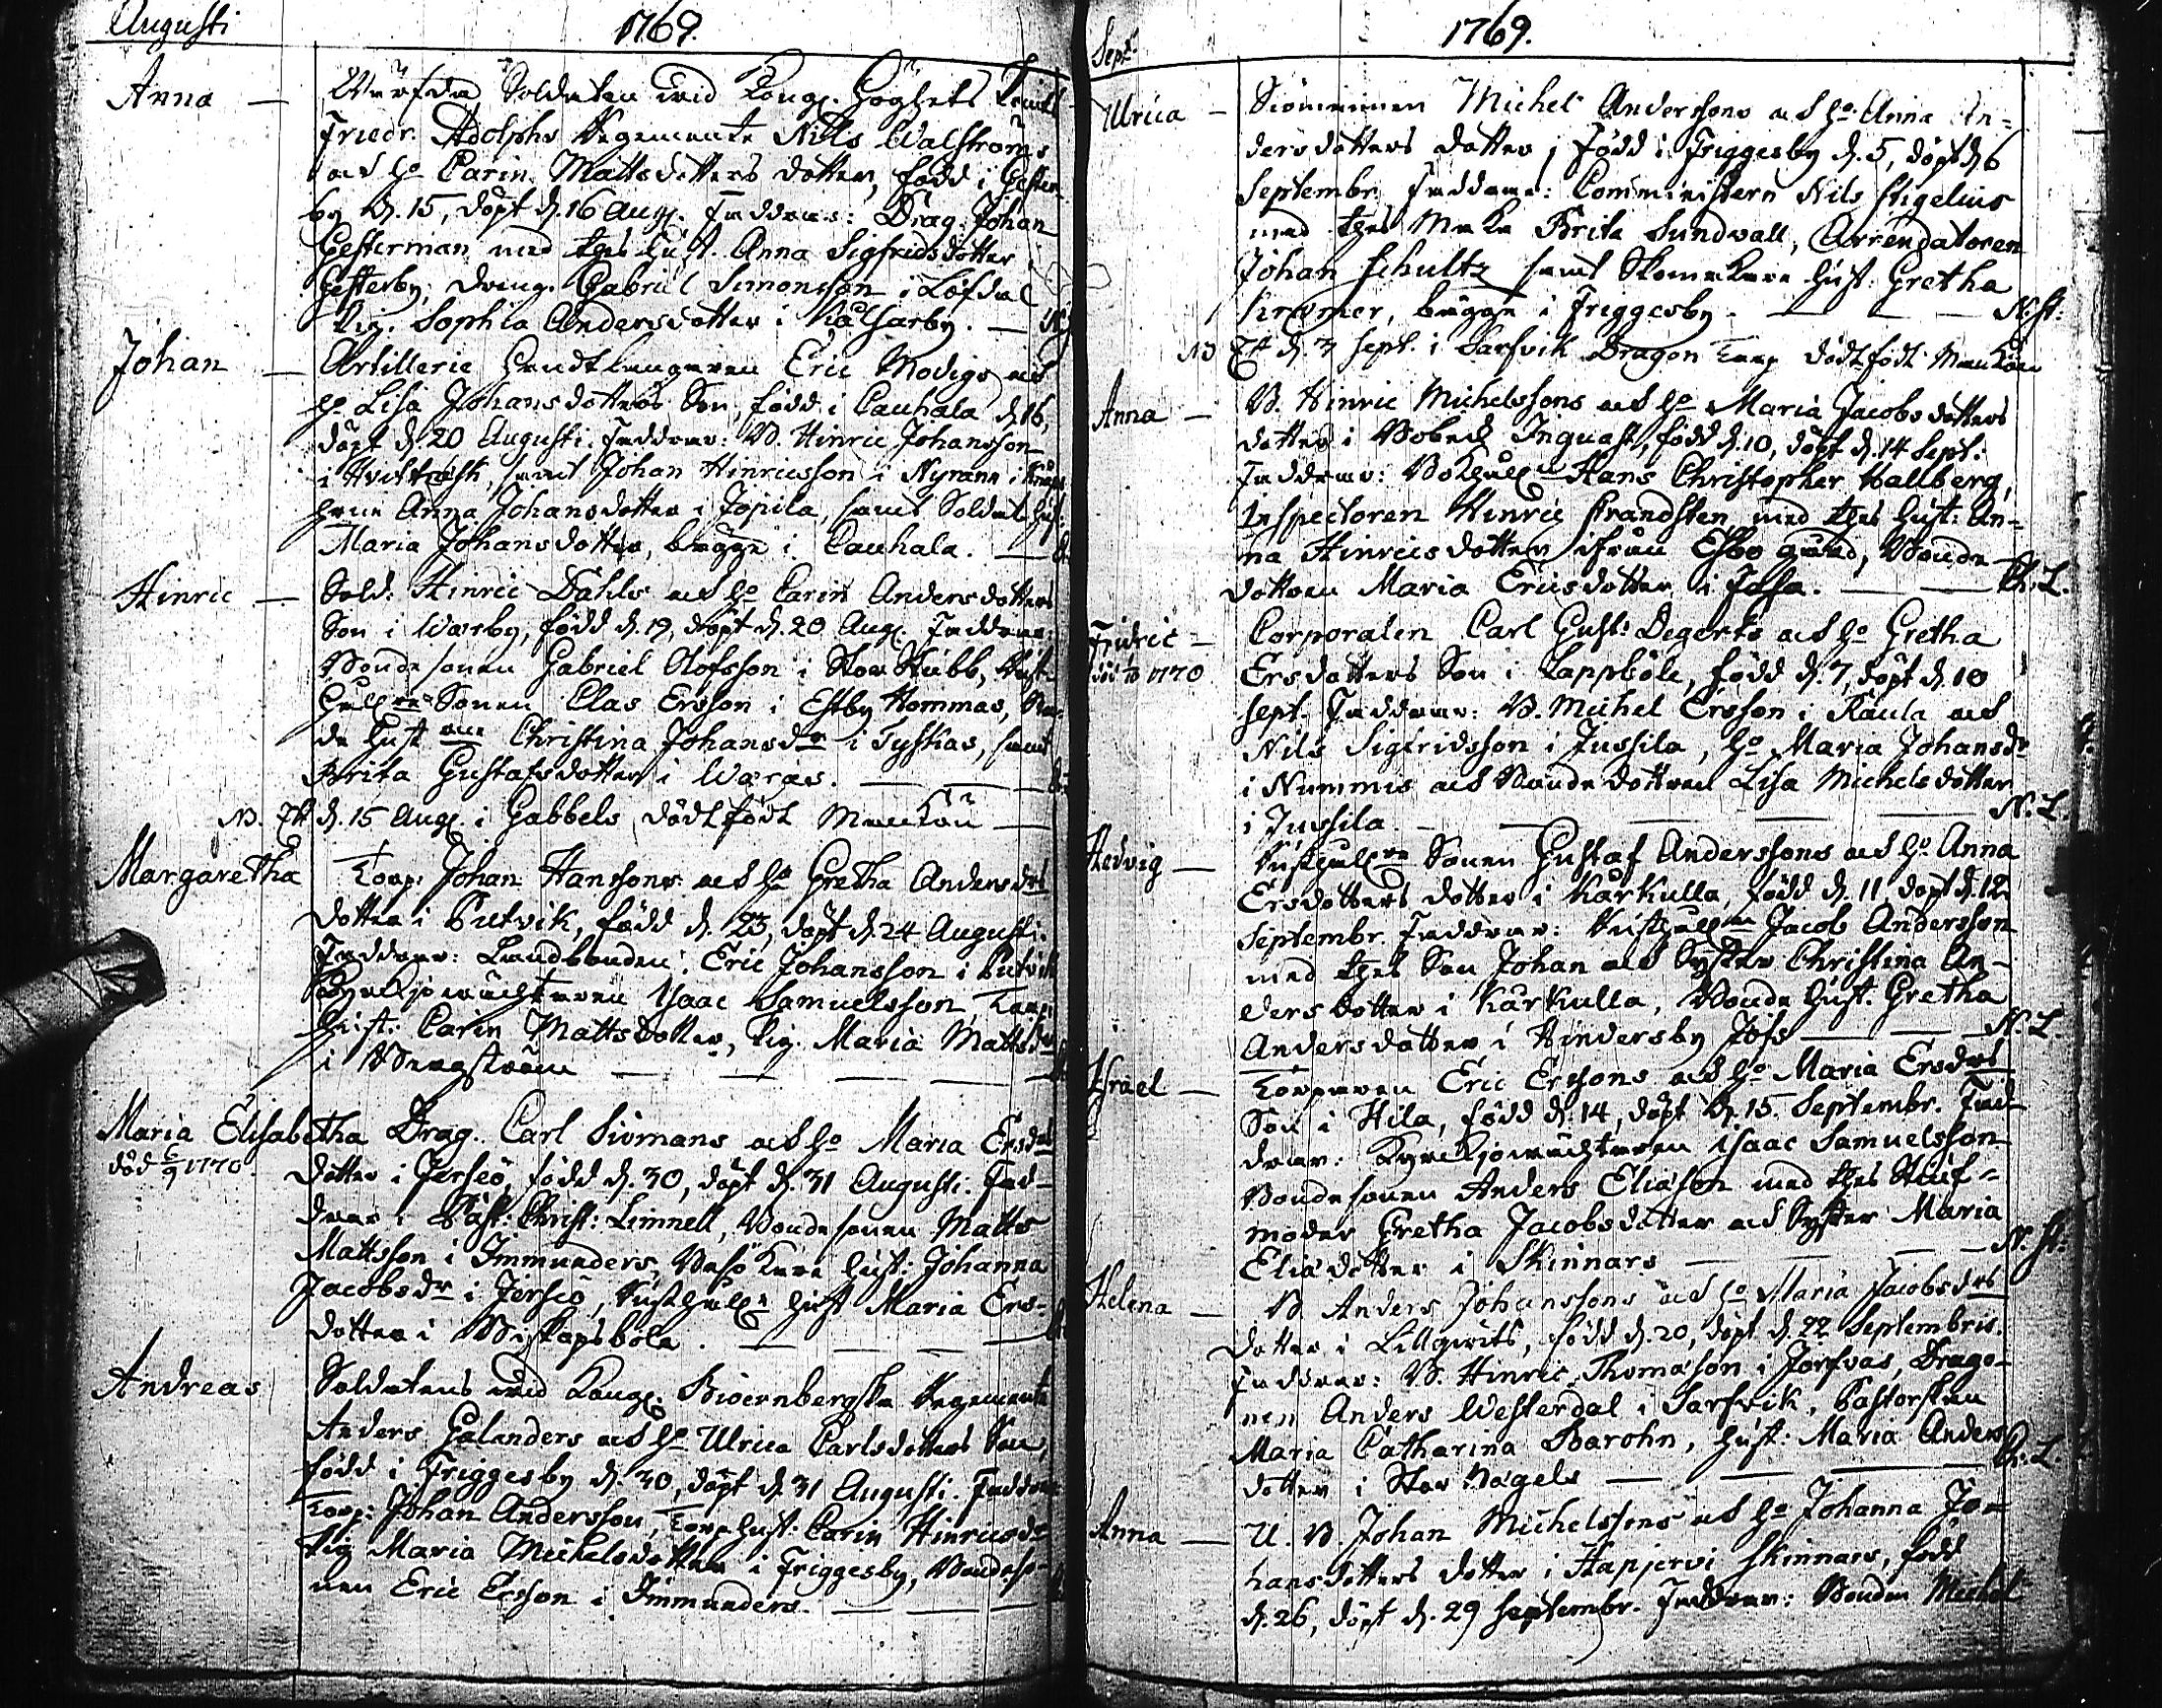 Augusti
1769.
Anna — Värfda Soldaten wid Kongl. Höghets Prints
Friedr. Adolphs Regemente Nils Walströms
och h:o Carin Mattsdotters dotter, född i Gester-
by d. 15, döpt d. 16 Aug. Faddrar: Drag. Johan
Gesterman med thes hust. Anna Sigfridsdotter i
Gesterby, dreng. Gabriel Simonsson i Löfdal
Pig. Sophia Andersdotter i Kålsarby. —
Johan — Artillerie Handtlangaren Eric Modigs och
h:o Lisa Johansdotters Son, född i Cauhala d. 16,
döpt d. 20 Augusti. Faddrar: B. Hinric Johansson
i Hvitträsk, samt Johan Hinricsson i Nyrann i
Anna Johansdotter i Jopila, samt Soldat hust:
Maria Johansdotter, bägge i Cauhala. —
Hinric — Sold: Hinric Dahls och h:o Carin Andersdotters
Son i Warby, född d. 19, döpt d. 20 Aug. Faddrar:
Bondesonen Gabriel Olofsson i Stor Stubb,
Sonen Clas Ersson i Estby Hommas, Bon-
de hust Christina Johansdr i Tyskas, samt
Brita Gustafsdotter i Wargs. —
NB. Ett d. 15 Aug. i Gabbels dödt födt Mankön —
Margaretha Torp: Johan Hanssons och h:o Gretha Andersdrs
dotter i Butvik, född d. 23, döpt d. 24 Augusti.
Faddrar: Landbonden Eric Johansson i Butvik
Kyrkjowächtaren Isaac Samuelsson, Torp:
hust: Carin Mattsdotter, Pig. Maria Mattsdr
i Bergström — — — —
Maria Elisabetha Drag. Carl Siömans och h:o Maria Ersdrs
död 6/9 1770. dotter i Jerseö, född d. 30, döpt d. 31 Augusti. Fad-
drar: Past: Christ: Limnell, Bondesonen Matts
Mattsson i Immunders, Besökare hust: Johanna
Jacobsdr i Jerseö, Rusthåll:s hust Maria Ers-
dotter i Biskopsböle. — — —
Andreas Soldatens wid Kongl. Biörnbergska Regemente
Anders Galanders och h:o Ulrica Carlsdotters Son,
född i Friggesby d. 30, döpt d. 31 Augusti. Faddrar
Torp: Johan Andersson, Torp hust: Carin Hinricsdr
Pig Maria Michelsdotter i Friggesby, Bondeso-
nen Eric Ersson i Immunders. — — —
Sept:
1769.
Ulrica — Siömannen Michel Anderssons och h:o Anna An-
dersdotters dotter, född i Friggesby d. 5, döpt d. 6
Septembr. Faddrar: Comministern Nils Stigelius
med thes Maka Brita Sundwall, Arrendatoren
Johan Schultz samt Skomakare hust: Gretha
Kræmer, bägge i Friggesby. — — — N. St:
NB Ett d. 3 Sept. i Sarfvik Dragon Torp dödt födt Mankön
Anna — B. Hinric Michelssons och h:o Maria Jacobsdotters
dotter i Bobeck Inguast, född d. 10, döpt d. 14 Sept:
Faddrar: Bokhåll:n Hans Christopher Hallberg,
Inspectoren Hinric Brandsten med thes hust: An-
na Hinricsdotter ifrån Esbo gård, Bonde
dottren Maria Ericsdotter i Jofsa. — — Ch. L.
Fridric — Corporalen Carl Gust: Degerts och h:o Gretha
död 1770 Ersdotters Son i Lappböle, född d. 7, döpt d. 10
Sept. Faddrar: B. Michel Ersson i Raula och
Nils Sigfridsson i Jussila, h:o Maria Johansdr
i Nummis och Bondedottren Lisa Michelsdotter
i Jussila. — — — — N. L.
Hedvig — Rusthåll:re Sonen Gustaf Anderssons och h:o Anna
Ersdotters dotter i Kårkulla, född d. 11 döpt d. 12
Septembr. Faddrar: Rusthåll:n Jacob Andersson
med thes Son Johan och Syster Christina An-
dersdotter i Kårkulla, Bonde hust. Gretha
Andersdotter i Hindersby Jofs — — N. L.
Israel — Torparen Eric Erssons och h:o Maria Ersdrs
Son i Hila, född d. 14, döpt d. 15 Septembr. Fad-
drar: Kyrkjowächtaren Isaac Samuelsson
Bondesonen Anders Eliason med thes Stiuf-
moder Gretha Jacobsdotter och Syster Maria
Eliädotter i Skinnars — — — N. St:
Helena — B Anders Johanssons och h:o Maria Jacobsdrs
dotter i Lillgwits, född d. 20, döpt d. 22 Septembris.
Faddrar: B. Hinric Thomasson i Jorfvas, Drago-
nen Anders Westerdal i Sarfvik, Pastorskan
Maria Catharina Barohn, hust: Maria Anders
dotter i Stor Nägels — — — Ch. L.
Anna — U. B. Johan Michelssons och h:o Johanna Jo-
hansdotters dotter i Hapjervi Skinnars, född
d. 26, döpt d. 29 Septembr. Faddrar: Bonden Michel